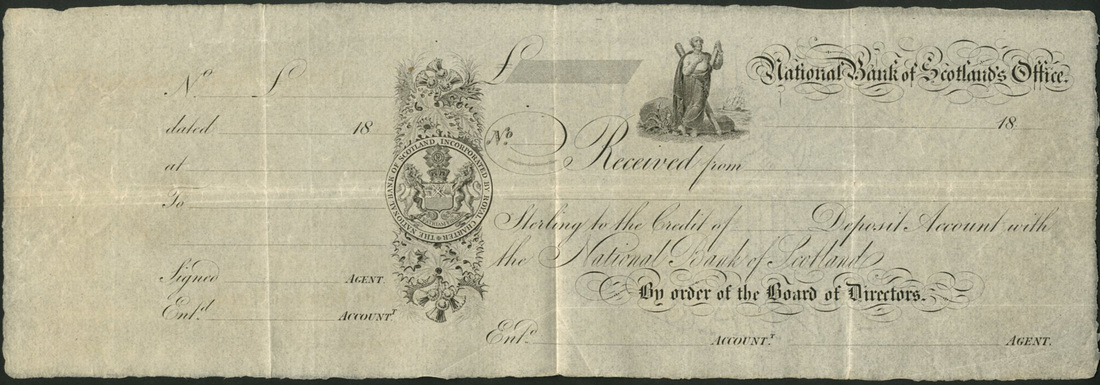 Nº £
dated 18
at
To
Signed AGENT.
Ent.d ACCOUNT.T
THE NATIONAL BANK OF SCOTLAND, INCORPORATED BY ROYAL CHARTER
£
National Bank of Scotland's Office.
18
Nº.
Received from
Sterling to the Credit of Deposit Account with
the National Bank of Scotland
By order of the Board of Directors.
Ent.d ACCOUNT.T AGENT.